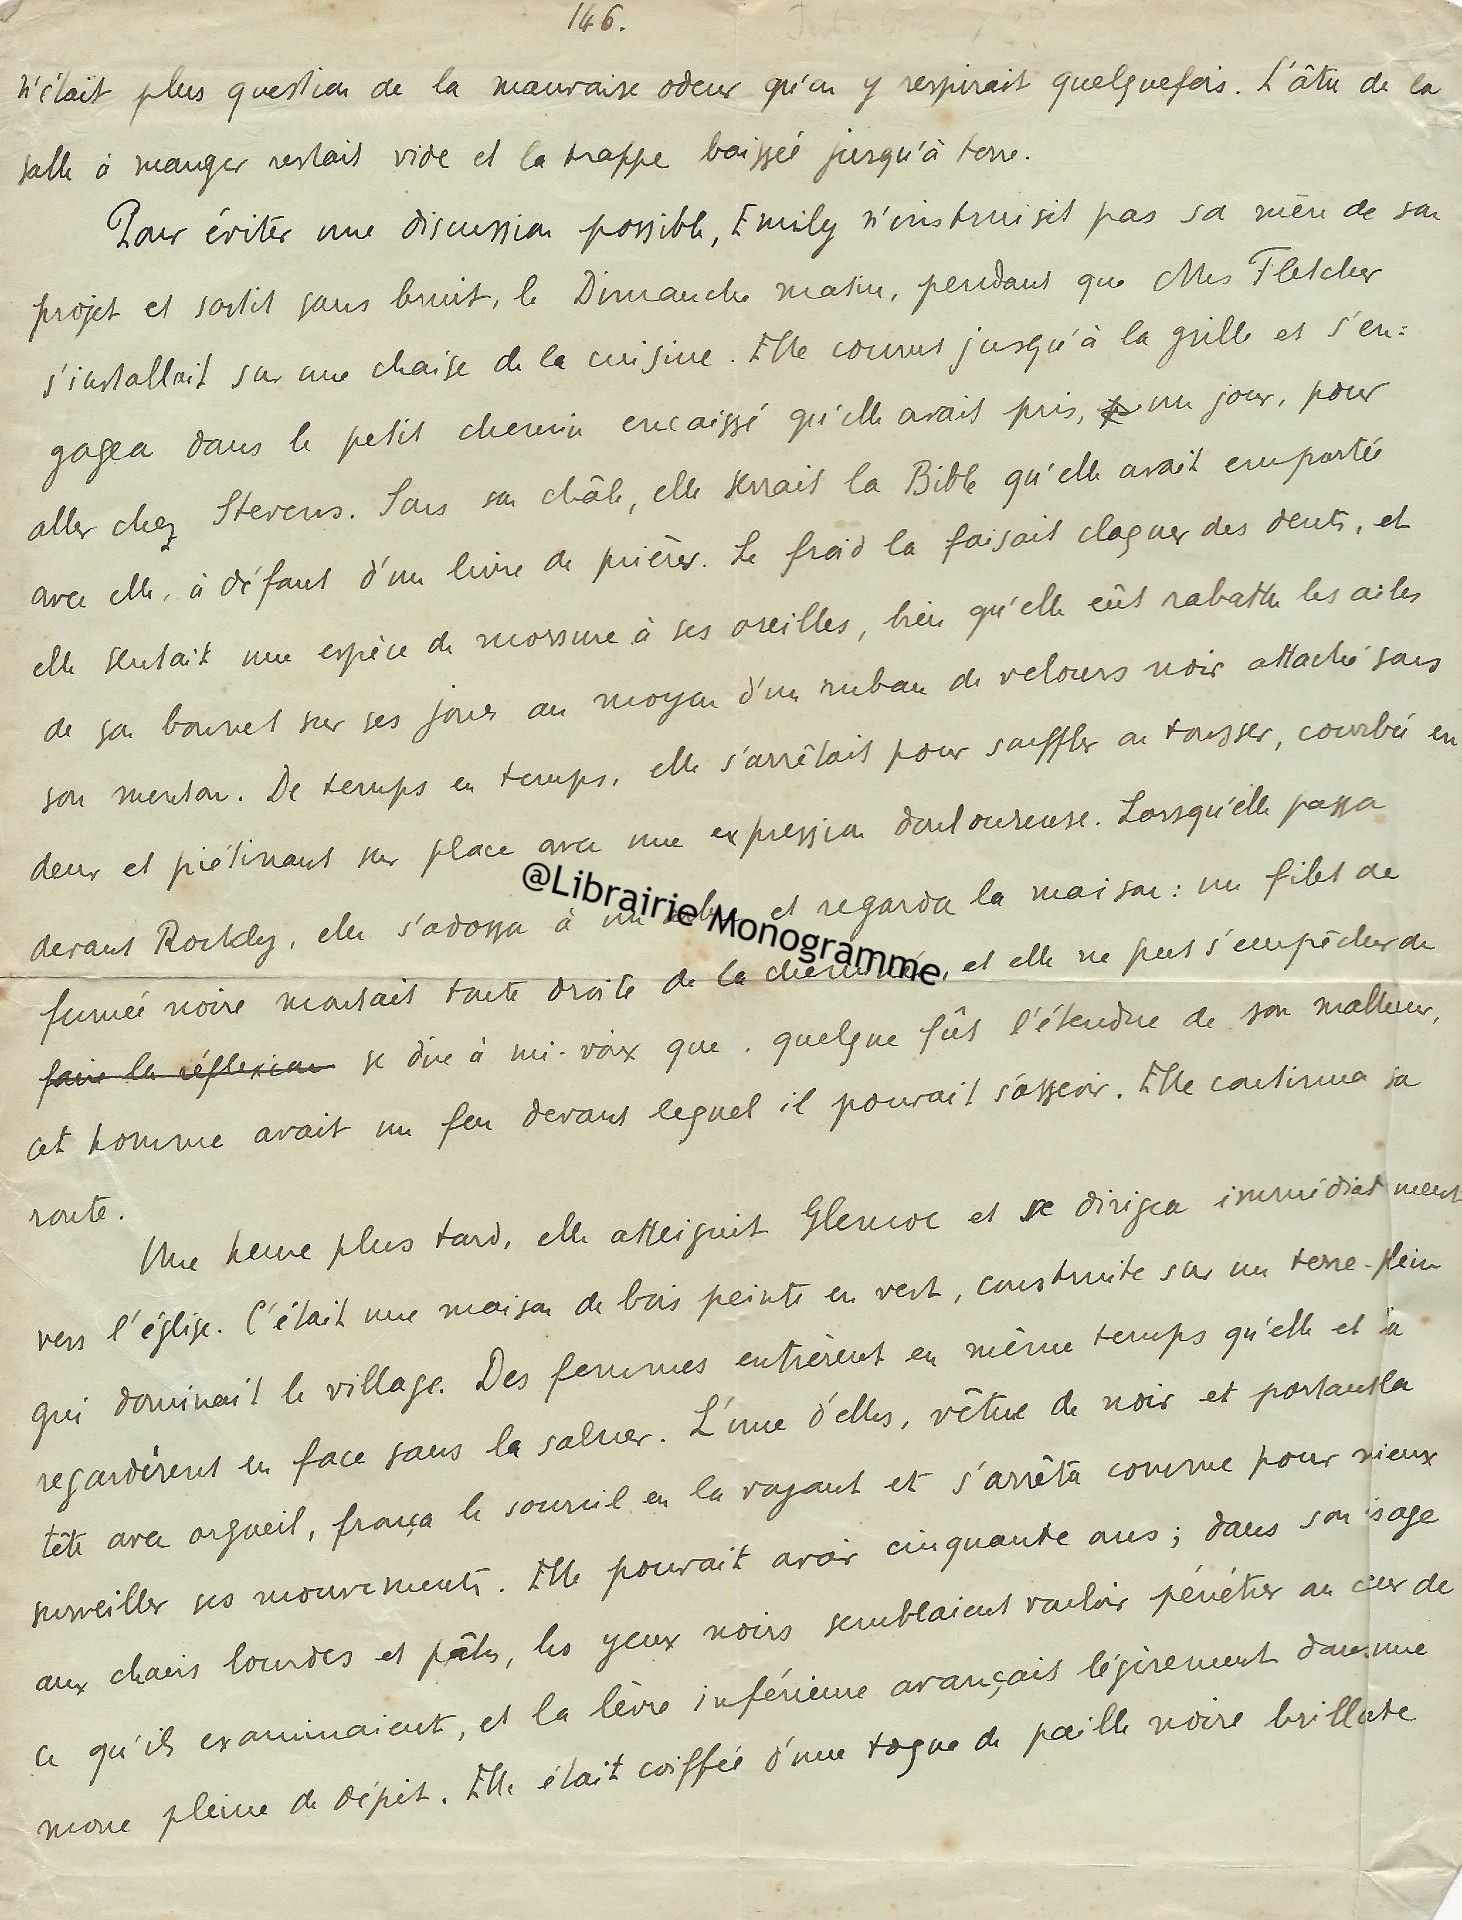 146.
n'était plus question de la mauvaise odeur qu'on y respirait quelquefois. L'âtre de la
salle à manger restait vide et la trappe baissée jusqu'à terre.
Pour éviter une discussion possible, Emily n'instruisit pas sa mère de son
projet et sortit sans bruit, le Dimanche matin, pendant que Mrs Fletcher
s'installait sur une chaise de la cuisine. Elle courut jusqu'à la grille et s'en=
gagea dans le petit chemin encaissé qu'elle avait pris, un jour, pour
aller chez Stevens. Sous son châle, elle serrait la Bible qu'elle avait emportée
avec elle, à défaut d'un livre de prières. Le froid la faisait claquer des dents, et
elle sentait une espèce de morsure à ses oreilles, bien qu'elle eût rabattu les ailes
de son bonnet sur ses joues au moyen d'un ruban de velours noir attaché sous
son menton. De temps en temps, elle s'arrêtait pour souffler ou tousser, courbée en
deux et piétinant sur place avec une expression douloureuse. Lorsqu'elle passa
devant Rockly, elle s'adossa à un arbre et regarda la maison: un filet de
fumée noire montait toute droite de la cheminée, et elle ne put s'empêcher de
faire la réflexion se dire à mi-voix que, quelque fût l'étendue de son malheur,
cet homme avait un feu devant lequel il pouvait s'asseoir. Elle continua sa
route.
Une heure plus tard, elle atteignit Glencoe et se dirigea immédiatement
vers l'église. C'était une maison de bois peinte en vert, construite sur un terre-plein
qui dominait le village. Des femmes entrèrent en même temps qu'elle et la
regardèrent en face sans la saluer. L'une d'elles, vêtue de noir et portant la
tête avec orgueil, fronça le sourcil en la voyant et s'arrêta comme pour mieux
surveiller ses mouvements. Elle pouvait avoir cinquante ans; dans son visage
aux chairs lourdes et pâles, les yeux noirs semblaient vouloir pénétrer au cœur de
ce qu'ils examinaient, et la lèvre inférieure avançait légèrement dans une
moue pleine de dépit. Elle était coiffée d'une toque de paille noire brillante
@Librairie Monogramme